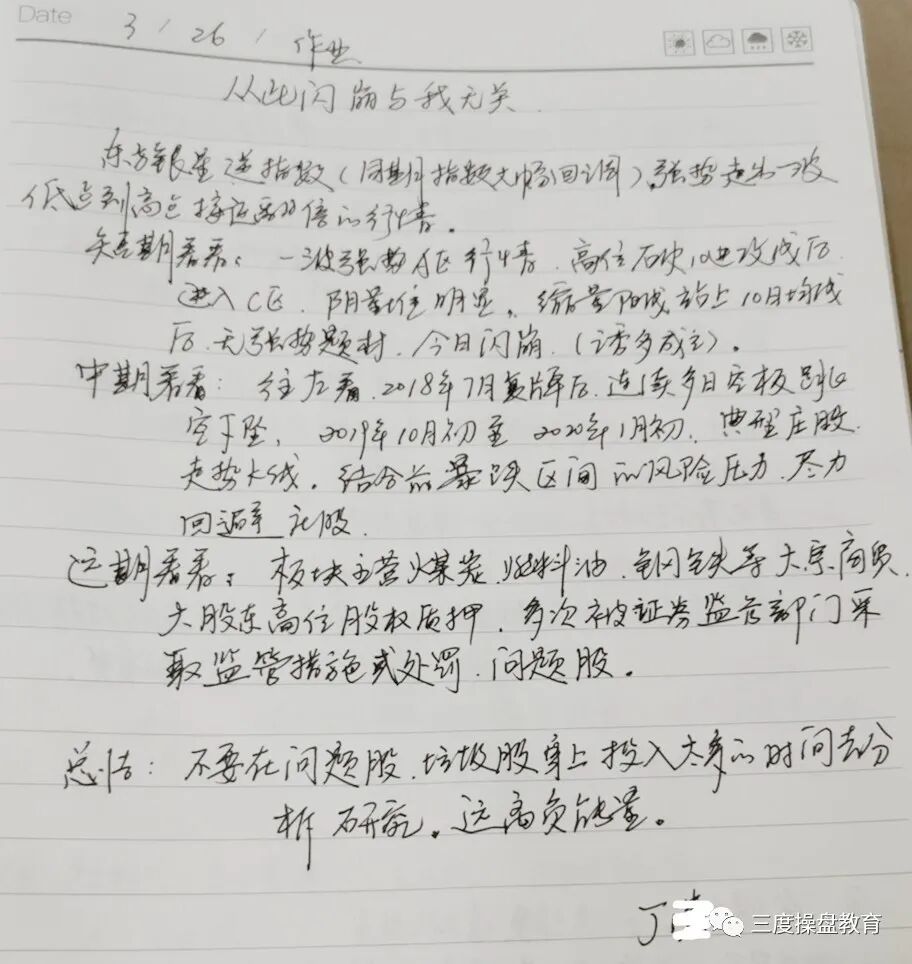 Date 3 / 26 / 作业
从此闪崩与我无关
东方银星逆指数(同期指数大幅回调)强势走出一波
低点到高点接近翻倍的行情。
短期看看: 一波强势 行情、高位 后
进入C区、阴量柱明显。缩量阳线站上10月均线
后、无强势题材、今日闪崩、(诱多成立)。
中期看看: 往左看、2018年7月复牌后、连续多日 板跳
空下坠、2019年10月初至2020年1月初、典型庄股
走势K线。结合前暴跌区间的风险压力、尽力
回避 股、
远期看看: 板块主营煤炭、燃料油、钢铁等大宗商贸、
大股东高位股权质押、多次被证券监管部门采
取监管措施或处罚、问题股。
总结: 不要在问题股、垃圾股身上投入太多的时间去分
析研究。远离负能量。
丁
三度操盘教育